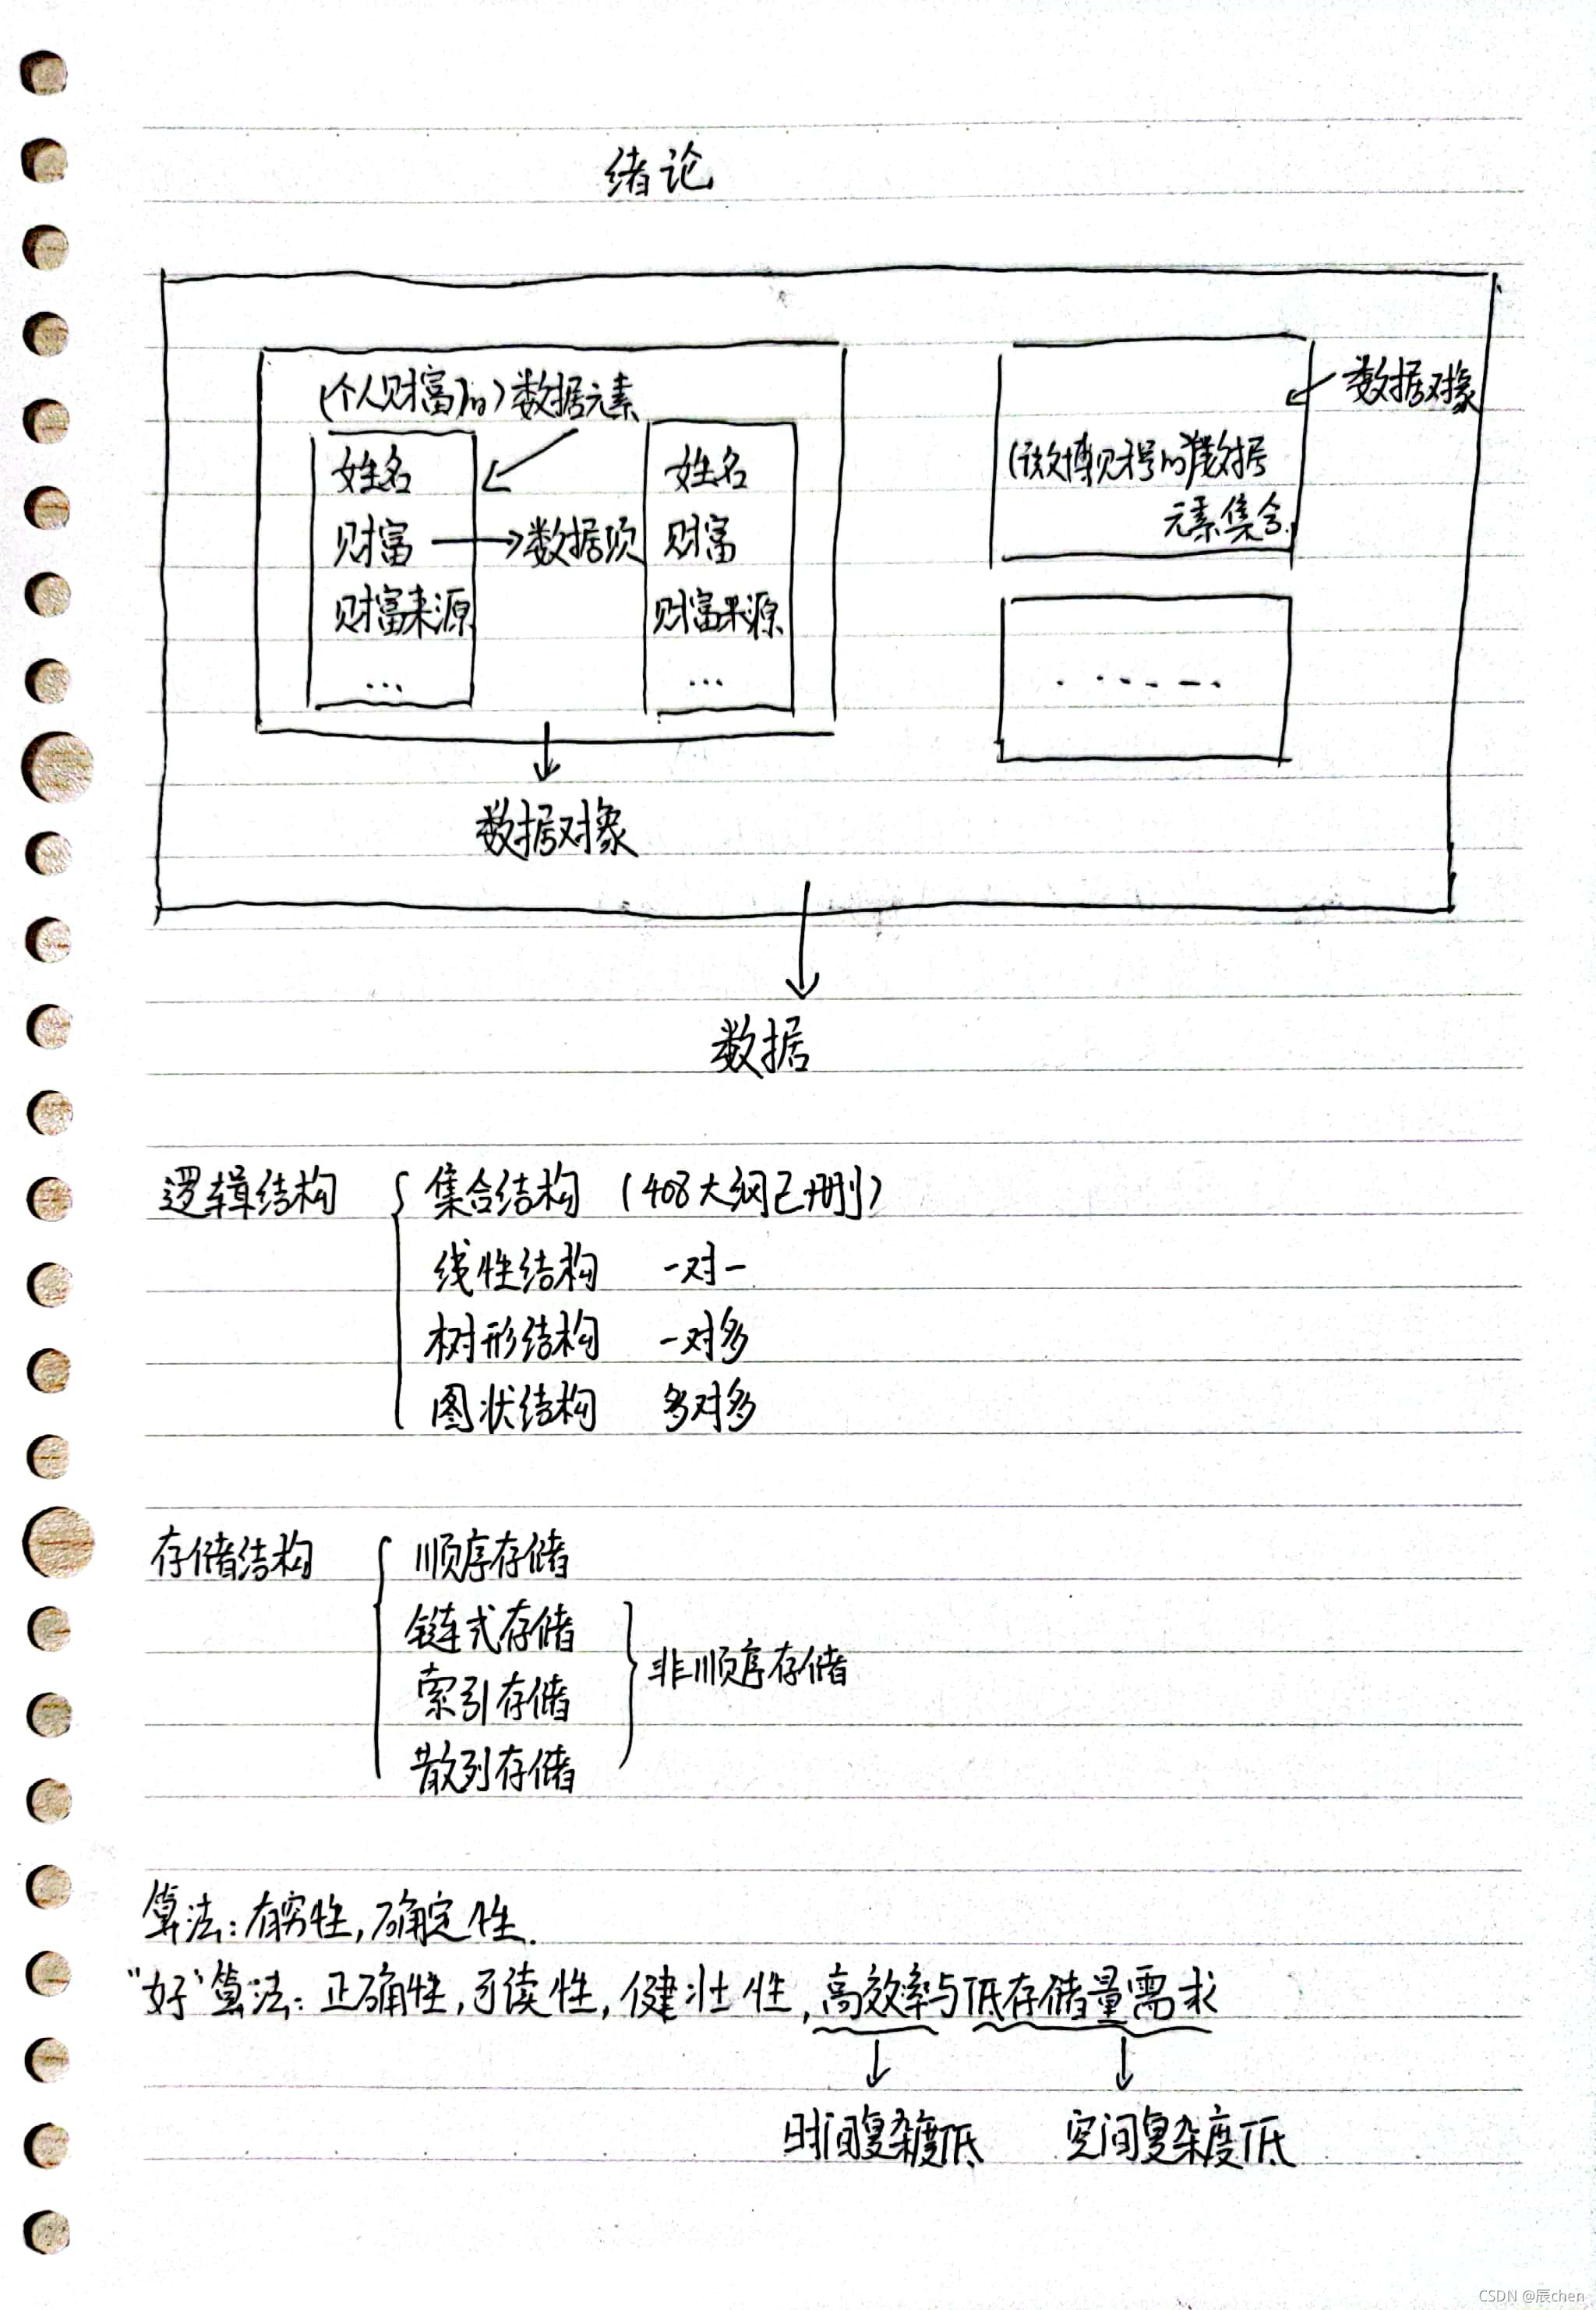 绪论
(个人财富的)数据元素
数据对象
姓名
姓名
财富
数据项
财富
财富来源
财富来源
...
...
数据
元素集合
......
数据对象
数据
逻辑结构
集合结构 (408大纲已删)
线性结构 一对一
树形结构 一对多
图状结构 多对多
存储结构
顺序存储
链式存储
索引存储
散列存储
非顺序存储
算法:有穷性,确定性.
"好"算法:正确性,可读性,健壮性,高效率与低存储量需求
时间复杂度低 空间复杂度低
CSDN @辰chen